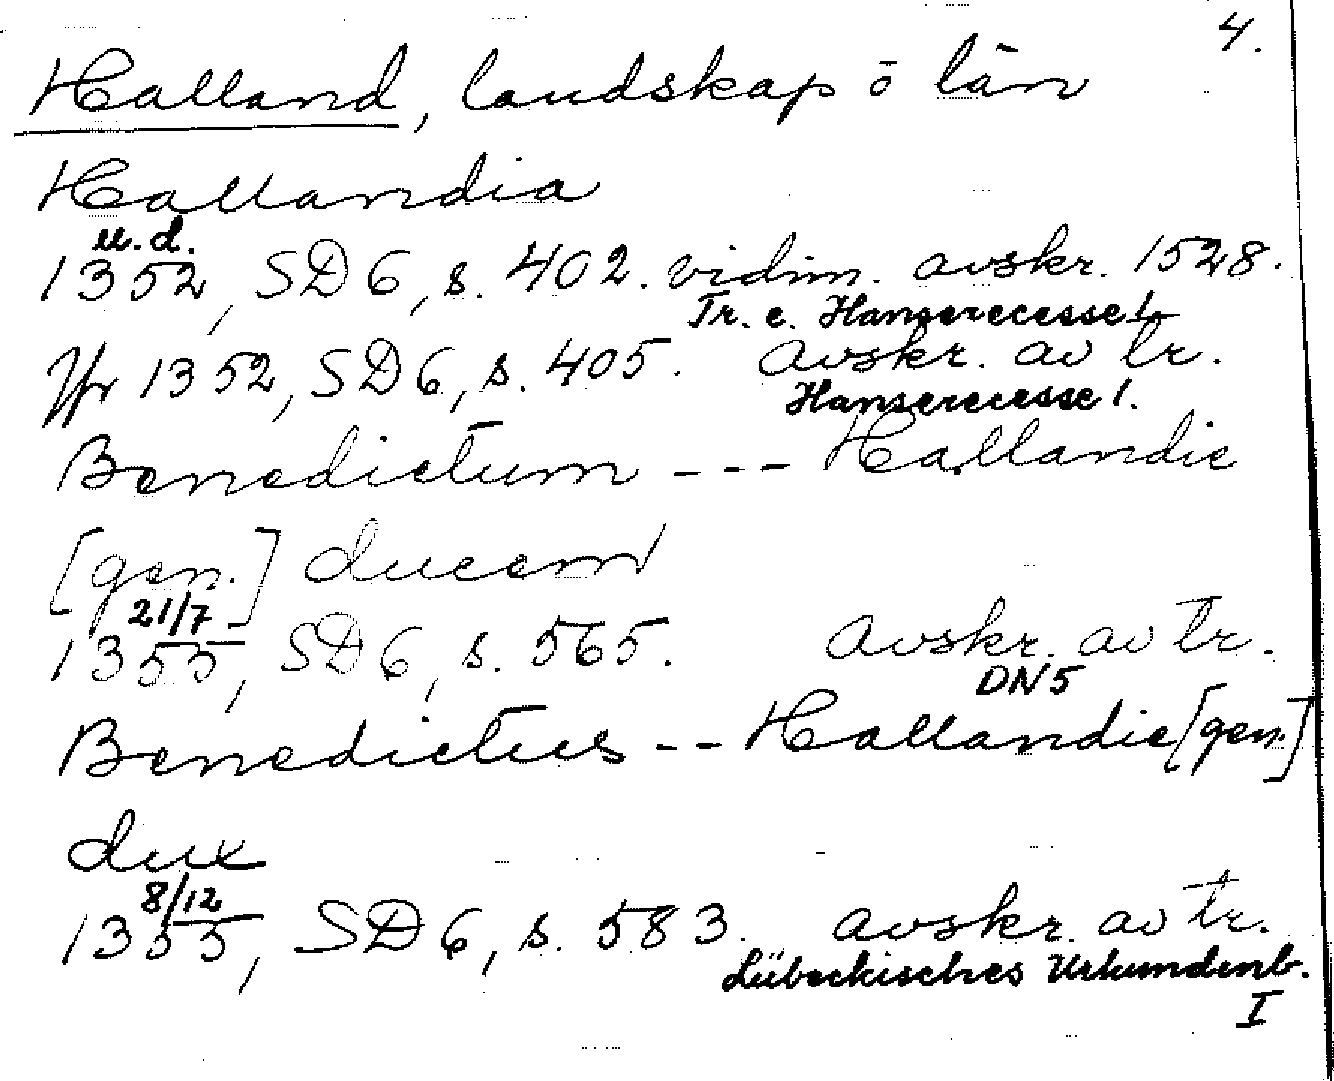 4.
Halland, landskap o län
Hallandia
u.d.
1352, SD 6, s. 402. vidim. avskr. 1528.
Tr. e. Hanserecesse 1.
Jfr 1352, SD 6, s. 405. avskr. av tr.
Hanserecesse 1.
Benedictum --- Hallandie
[gen.] ducem
21/7
1355, SD 6, s. 565. avskr. av tr.
DN 5
Benedictus -- Hallandie [gen.]
dux
8/12
1355, SD 6, s. 583. avskr. av tr.
Lübeckisches Urkundenb.
I